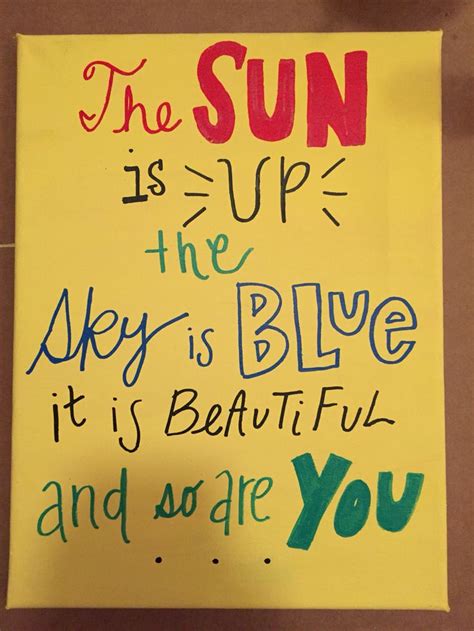 The SUN
is UP
the
Sky is BLuE
it is BEAuTiFUL
and so are YOU
...